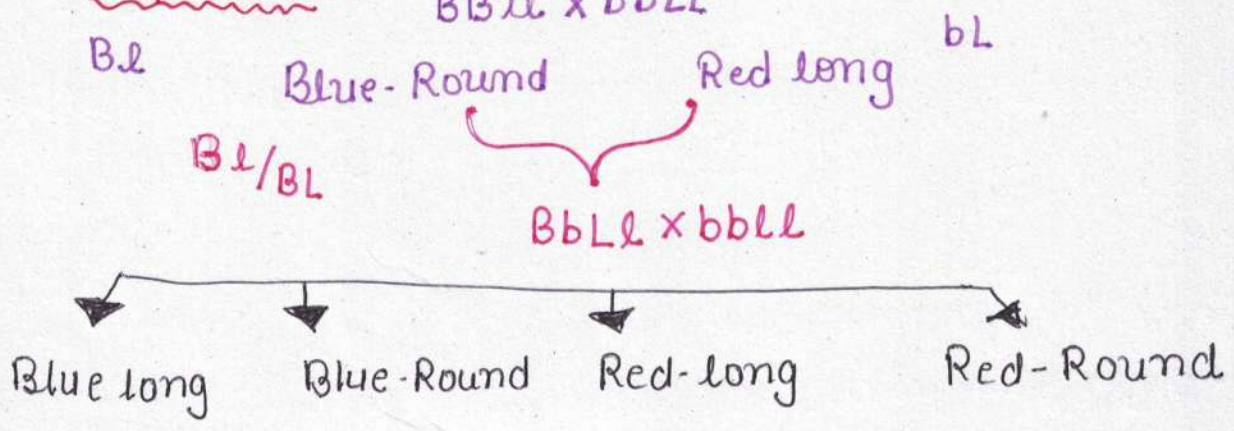 BBll x bbLL
Bl bL
Blue-Round Red long
Bl/BL
BbLl x bbll
Blue long Blue-Round Red-long Red-Round